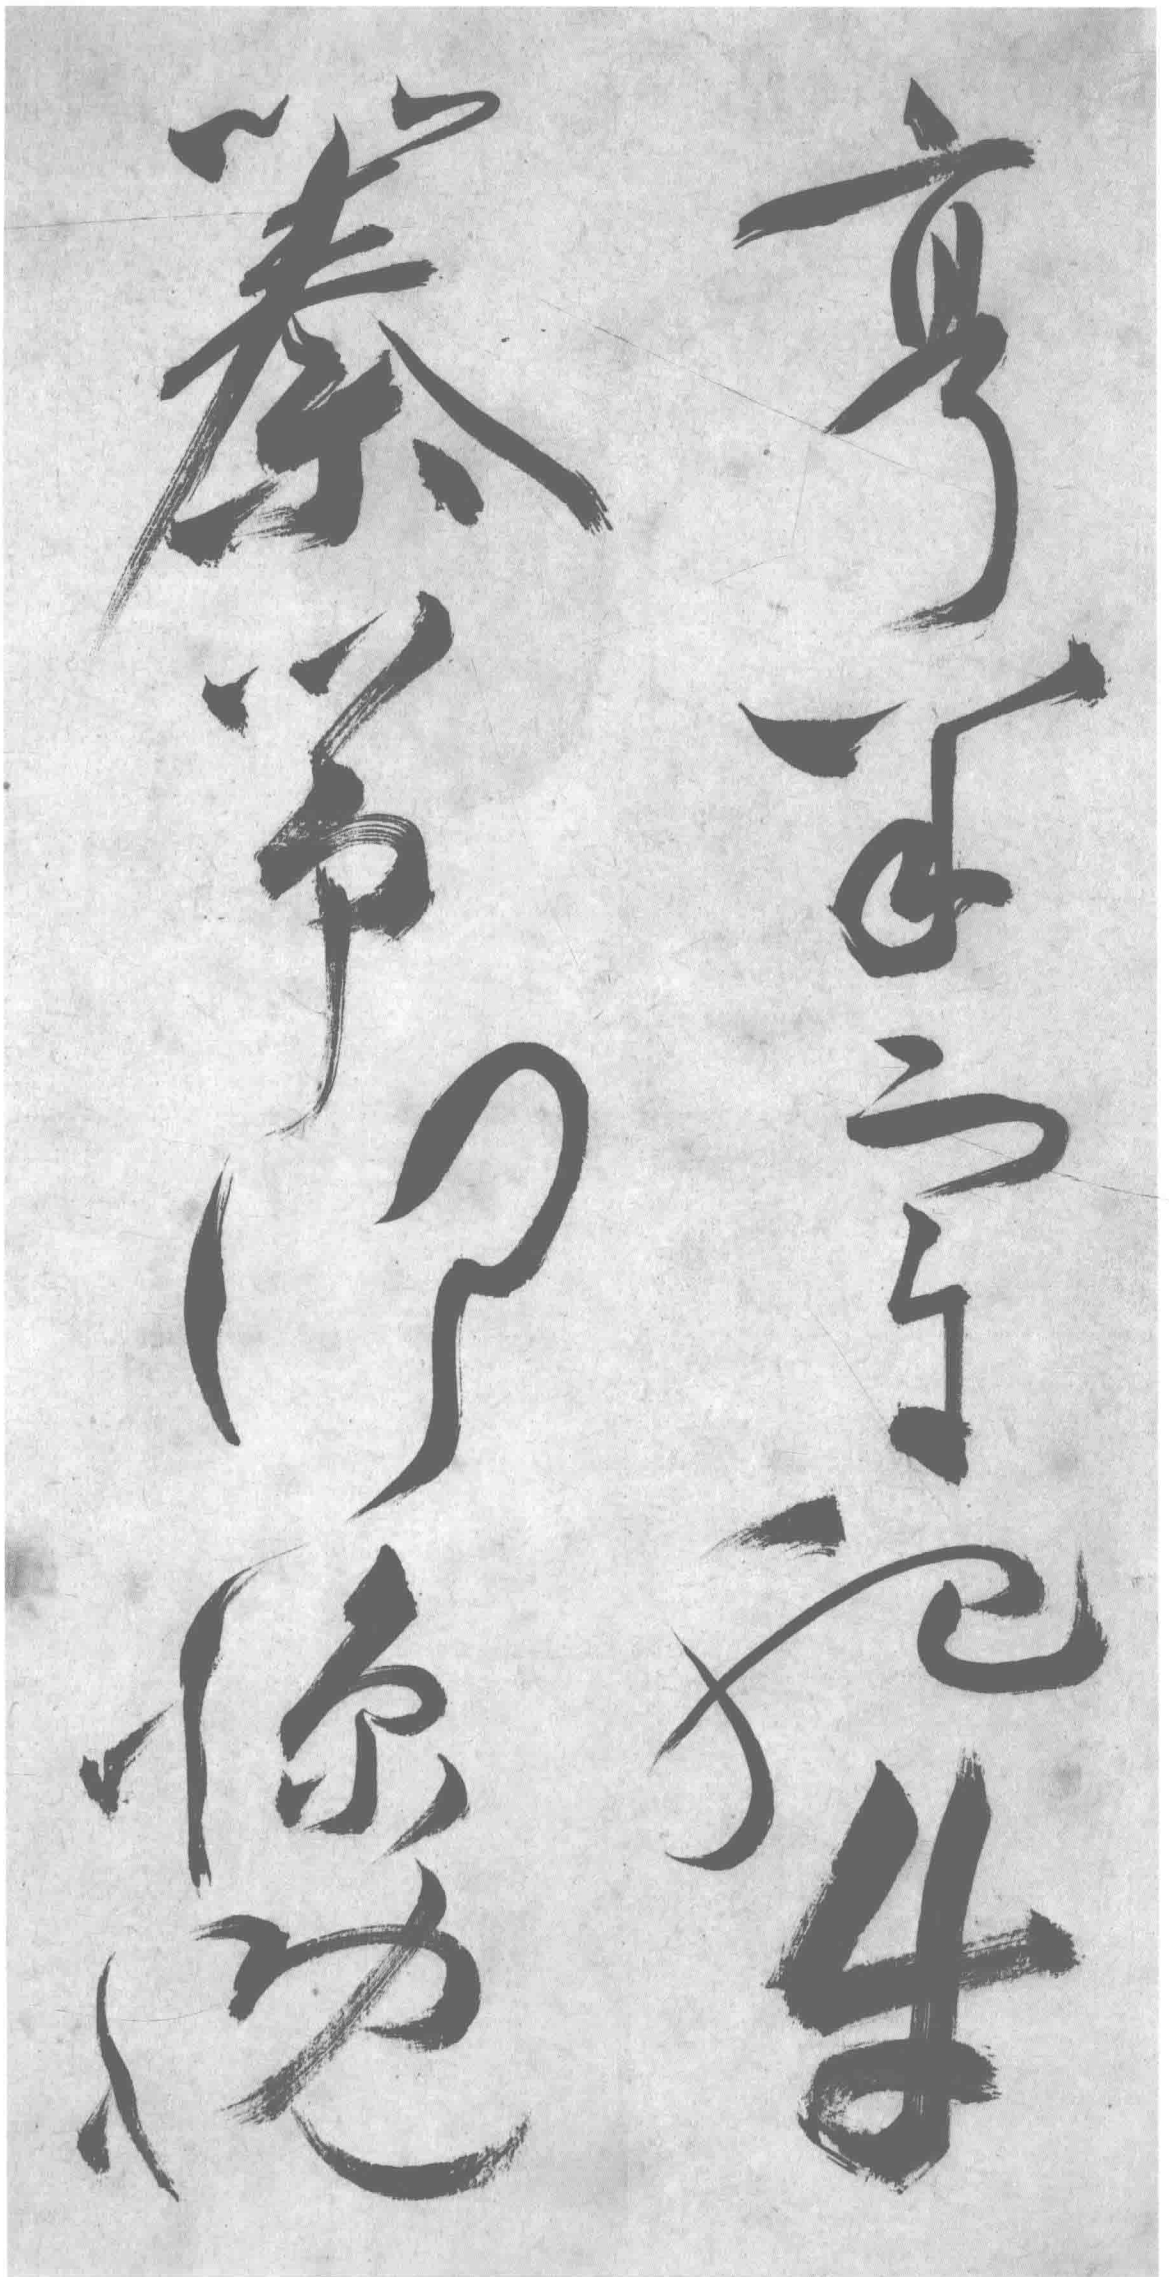 亨羊宰肥牛
秦筝何慷慨